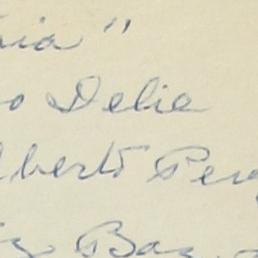 ria"
o Delia
lberto Per
z Baz